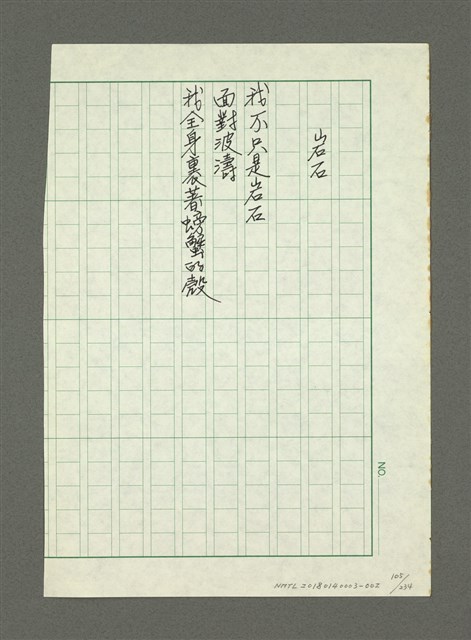 岩石
我不只是岩石
面對波濤
我全身裹著螃蟹的殼
NO.
105/234
NMTL20180140003-002